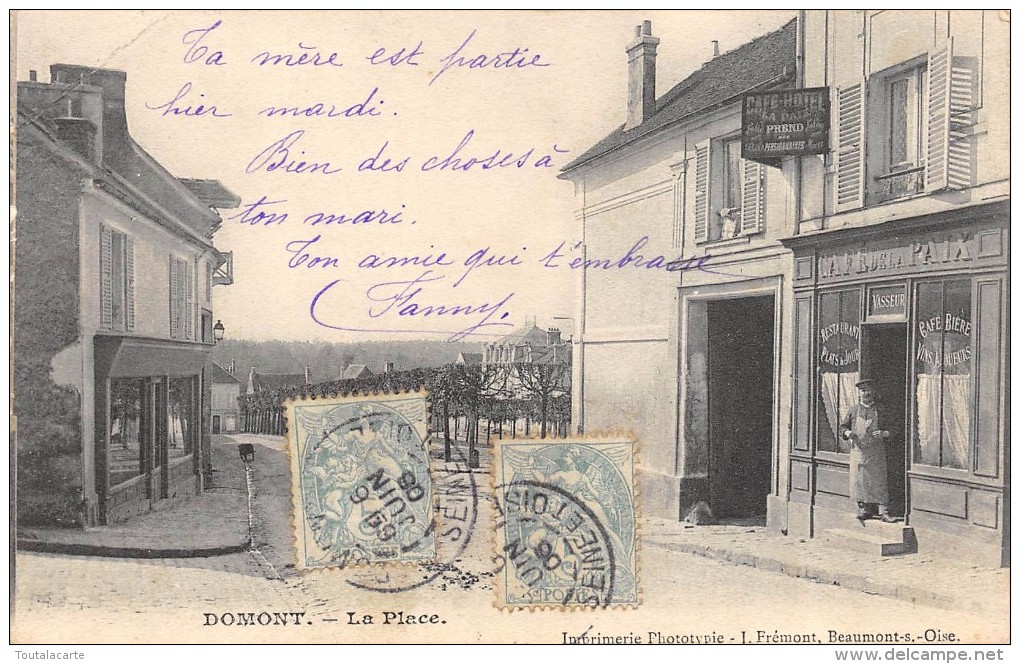 Ta mère est partie
hier mardi.
Bien des choses à
ton mari.
Ton amie qui t'embrasse
Fanny.
CAFÉ HOTEL
PREND
PENSIONNAIRES
CAFÉ DE LA PAIX
VASSEUR
RESTAURANT
PLATS du JOUR
CAFÉ BIÈRE
VINS LIQUEURS
JUIN
06
SEINE
ET OISE
SEINE
06
DOMONT. - La Place.
Imprimerie Phototypie - I. Frémont, Beaumont-s.-Oise.
Toutalacarte
http://www.delcampe.net